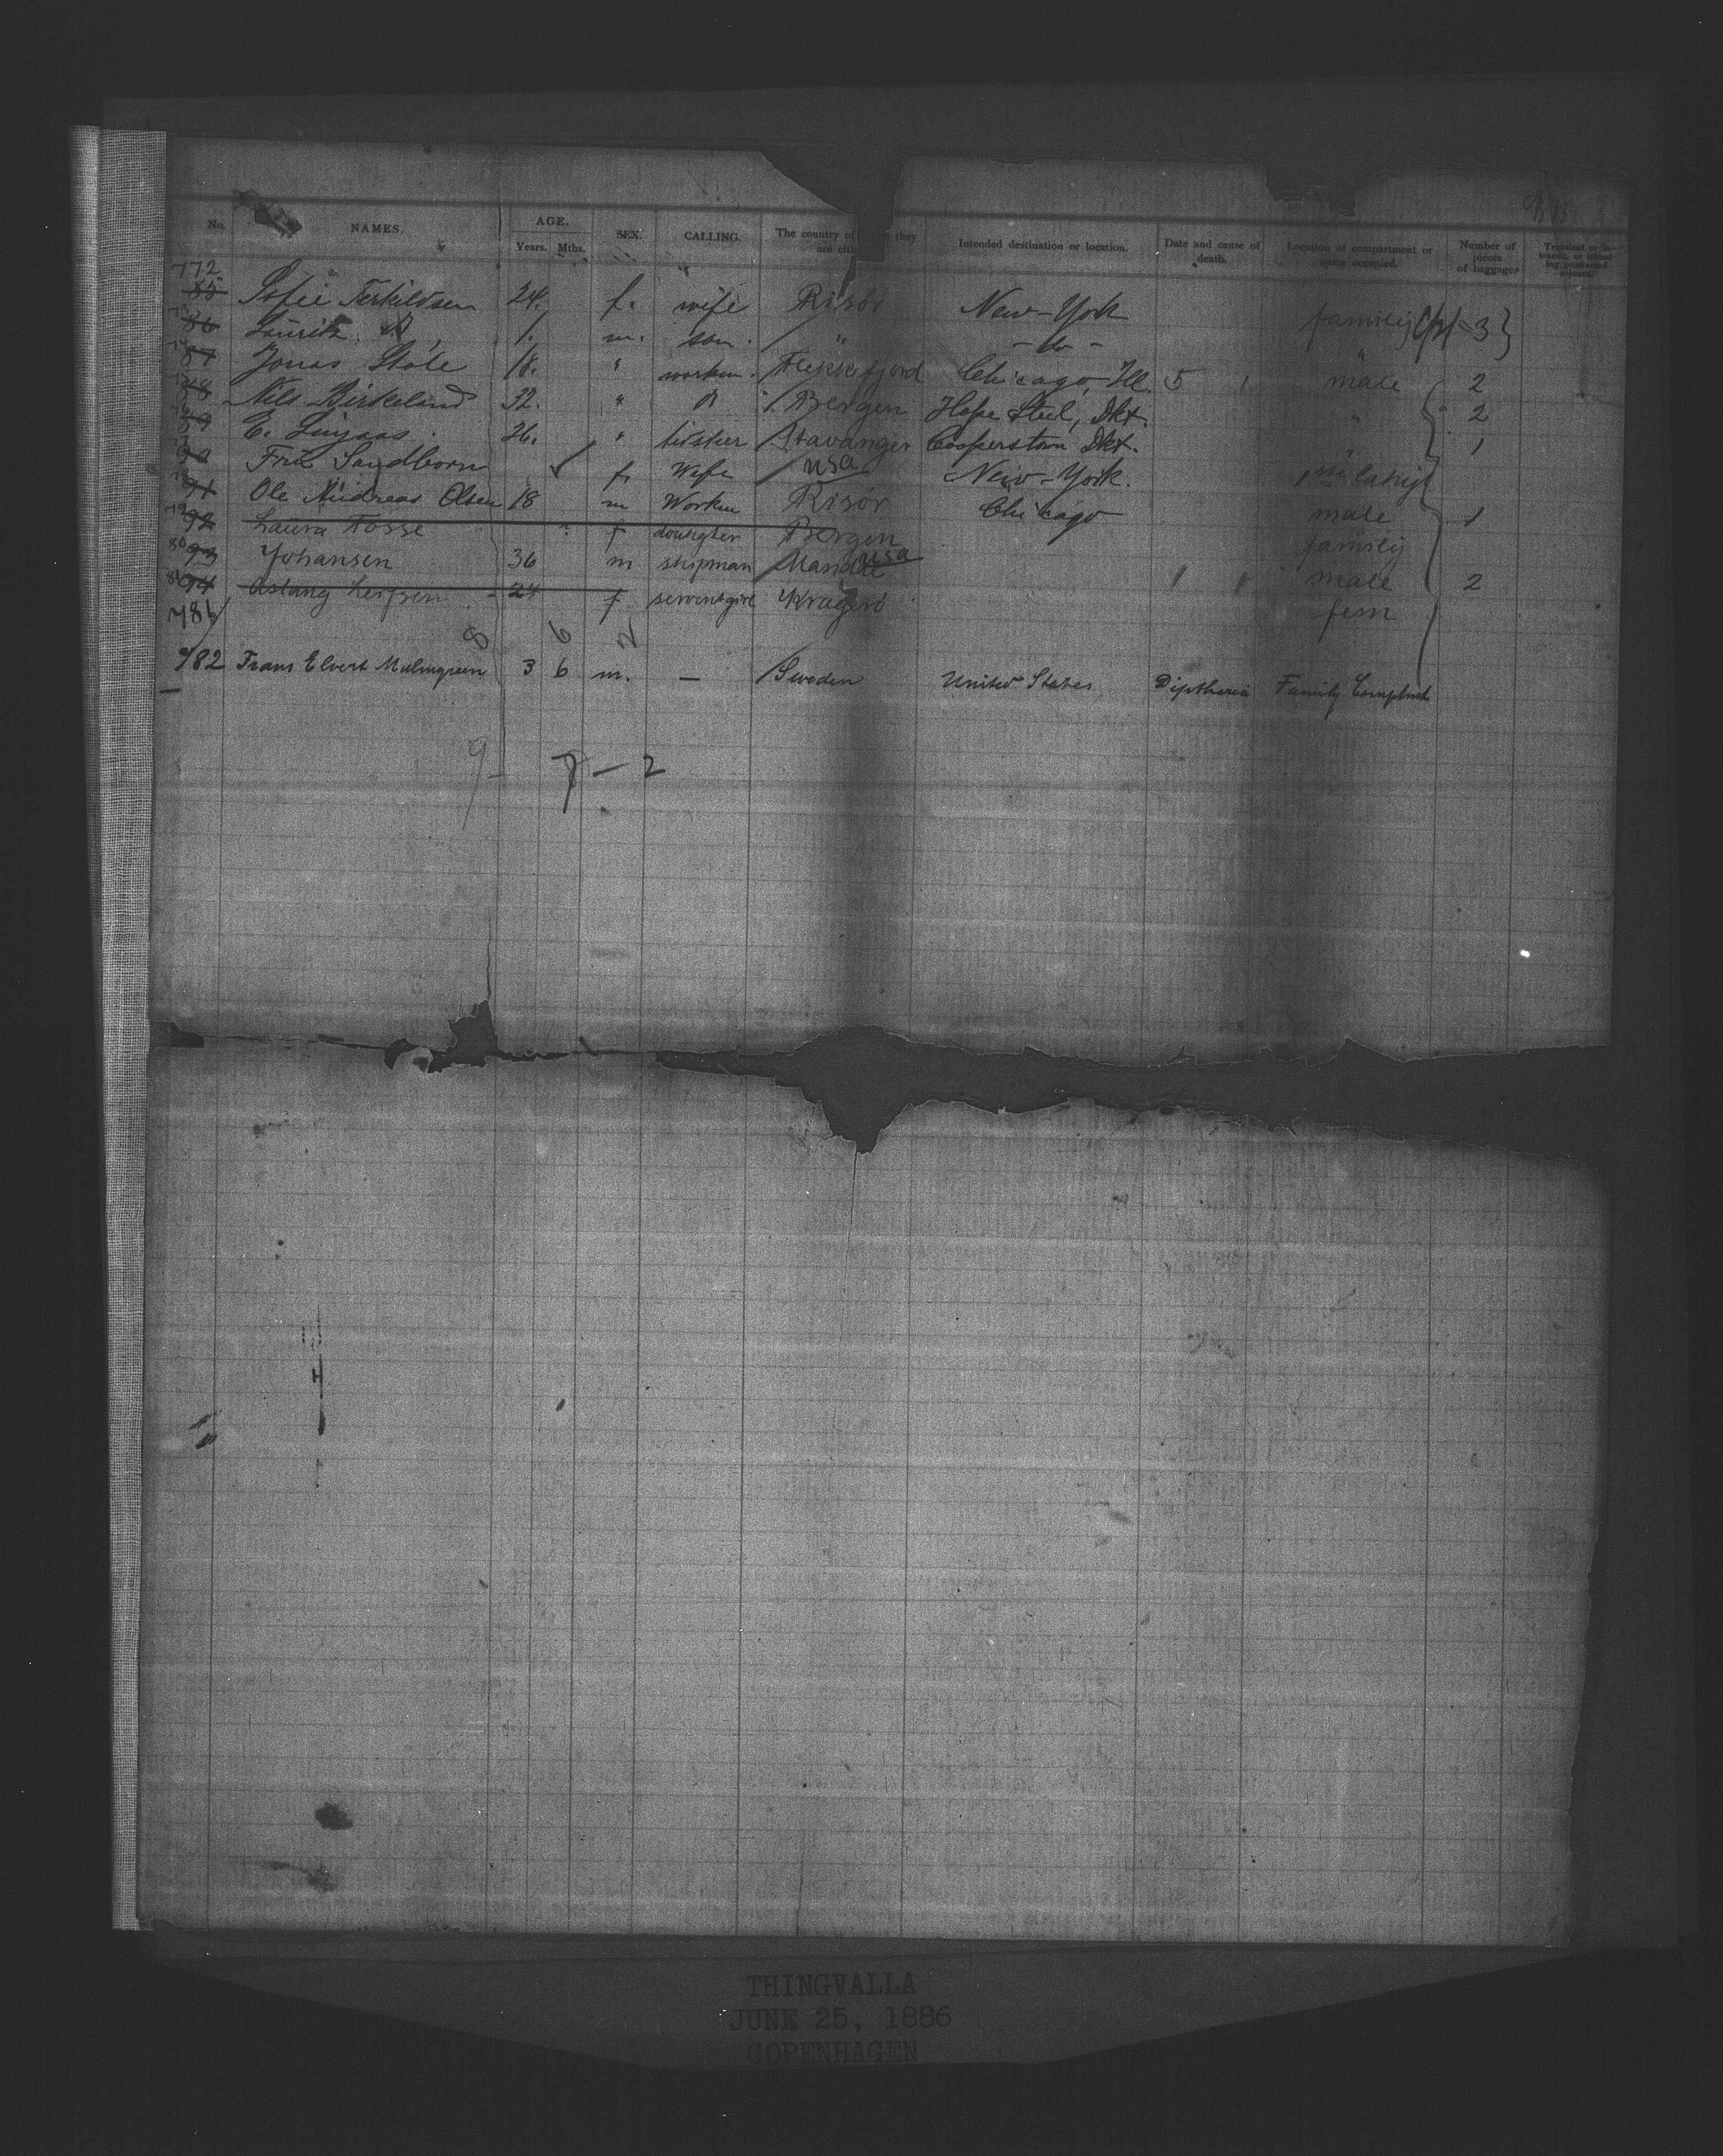 No. NAMES. AGE. Years. Mths. SEX. CALLING. The country of they are Intended destination or location. Date and cause of death. Location of compartment or space occupied. Number of pieces of baggages
772
85 Sofie Terkildsen 24. f. wife Risör New-York family 3
86 Lauritz 1. m. son. " - do - "
87 Jonas Stole 18. " worken. Flekkefjord Chicago Ill. 5 male 2
88 Nils Birkeland 32. " Bergen Hope Dkt. " 2
89 E. 26. " Stavanger Cooperstown Dkt. " 1
90 Sandborn f. Wife usa New-York.
91 Ole Andreas Olsen 18 m Worken Risör Chicago male 1
92 Laura Fosse f doughter Bergen family
80 93 Johansen 36 m shipman Mandal usa male 2
81 94 24 f servantgirl Kragerö fem
8 6 2
782 Frans Elvert Malmgreen 3 6 m. — Sweden United States Diptheria Family
9 - 7 - 2
THINGVALLA
JUNE 25, 1886
COPENHAGEN